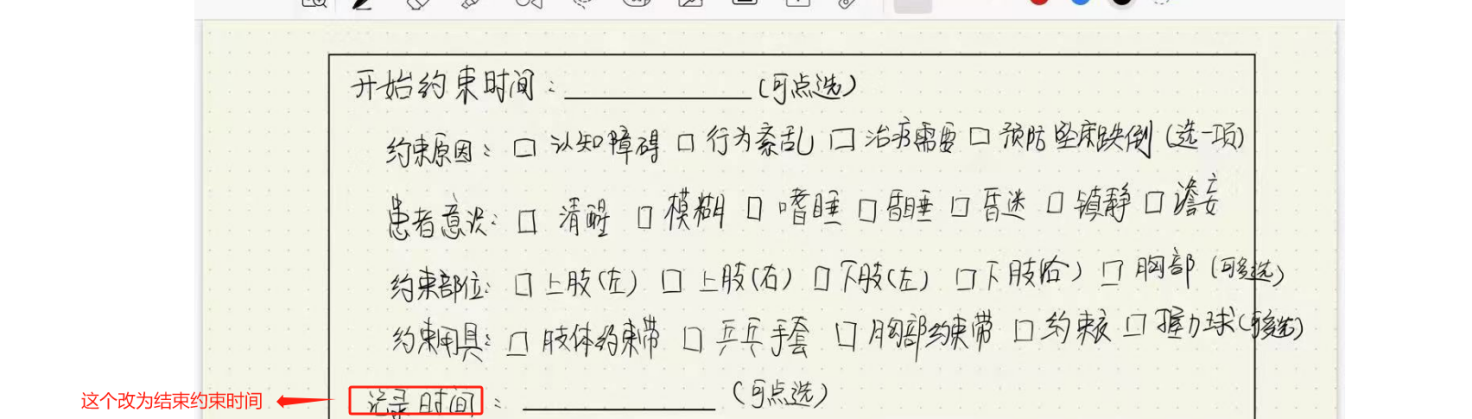 开始约束时间：＿＿＿＿＿＿(可点选)
约束原因：□ 认知障碍 □ 行为紊乱 □ 治疗需要 □ 预防坠床跌倒 (选一项)
患者意识：□ 清醒 □ 模糊 □ 嗜睡 □ 昏睡 □ 昏迷 □ 镇静 □ 谵妄
约束部位：□ 上肢(左) □ 上肢(右) □ 下肢(左) □ 下肢(右) □ 胸部 (可多选)
约束用具：□ 肢体约束带 □ 乒乓手套 □ 胸部约束带 □ 约束衣 □ 握力球(可多选)
这个改为结束约束时间
记录时间：＿＿＿＿＿＿(可点选)